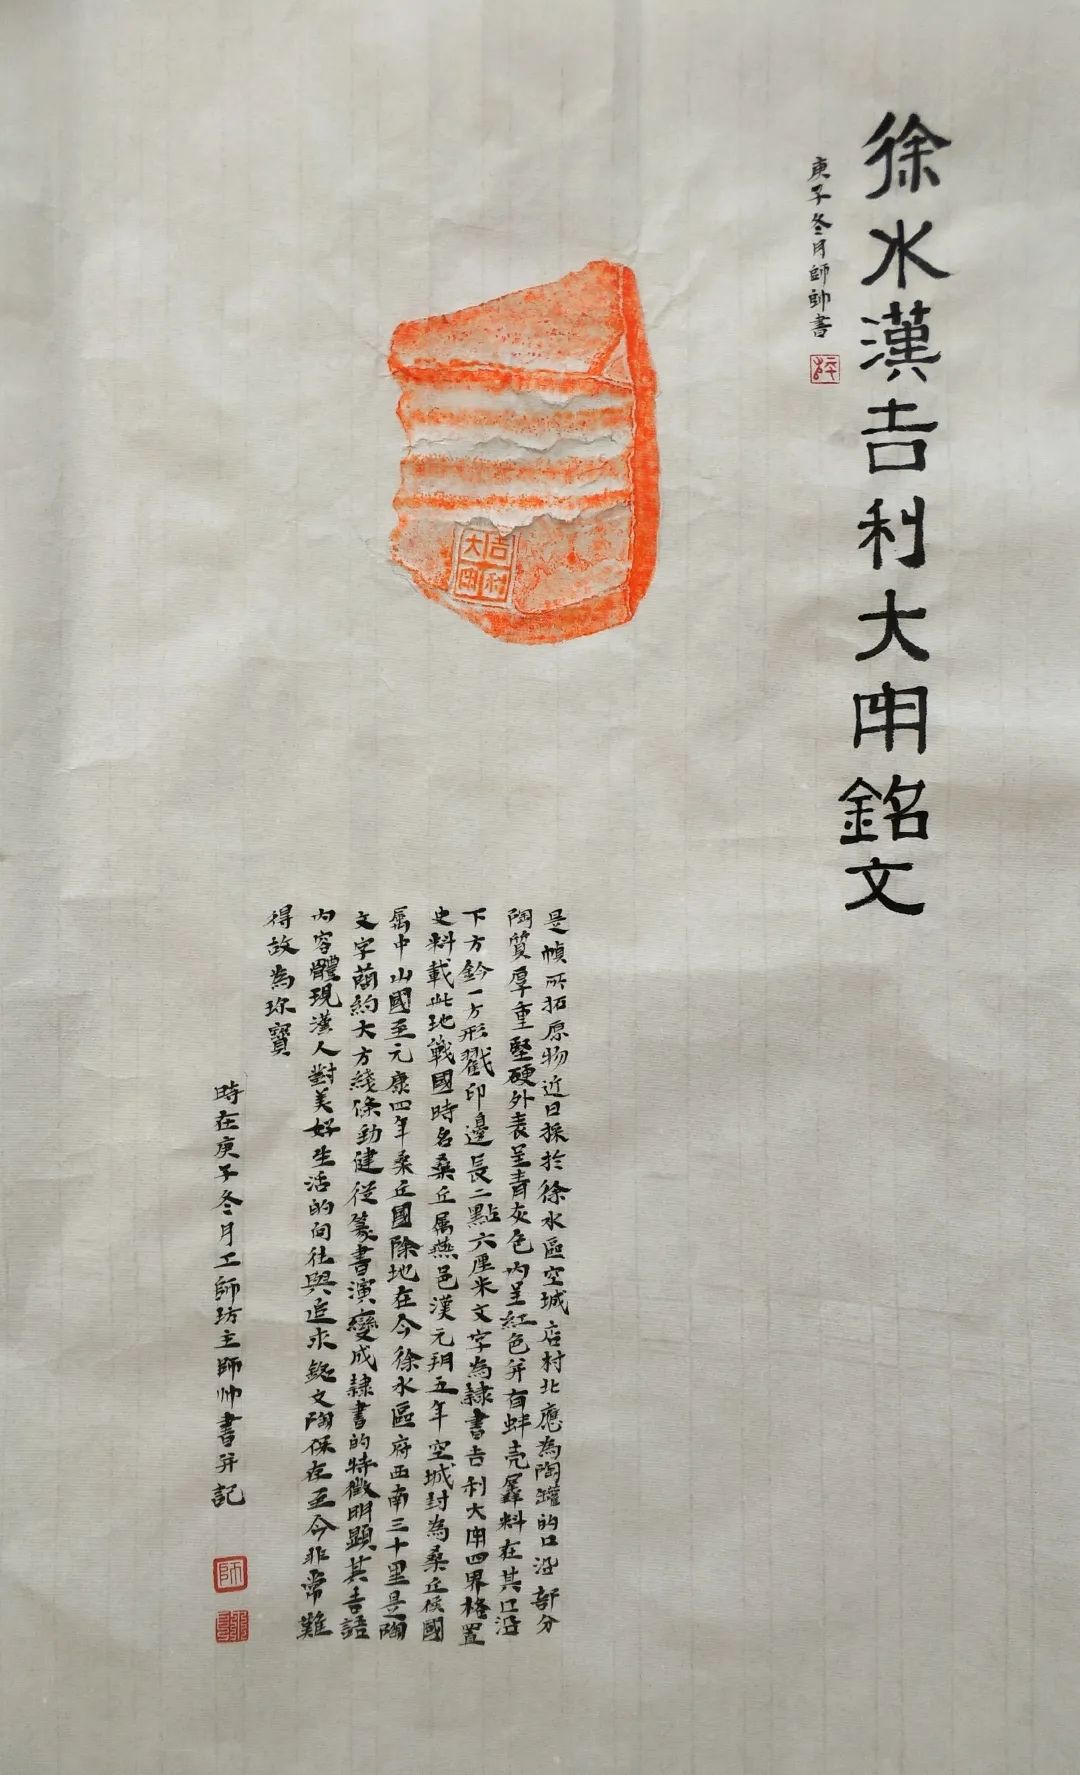 徐水漢吉利大用銘文
庚子冬月師帥書
吉利
大用
是幀所拓原物近日採於徐水區空城店村北應為陶罐的口沿部分
陶質厚重堅硬外表呈青灰色內呈紅色并有蚌壳羼料在其口沿
下方鈐一方形戳印邊長二點六厘米文字為隸書吉利大用四界格置
史料載此地戰國時名桑丘属燕邑漢元朔五年空城封為桑丘侯國
屬中山國至元康四年桑丘國除地在今徐水區府西南三十里是陶
文字蕳約大方綫條勁健從篆書演變成隸書的特徵明顯其吉語
內容體現漢人對美好生活的向往與追求銘文陶保存至今非常難
得故為珎寶
時在庚子冬月工師坊主師帅書并記
師